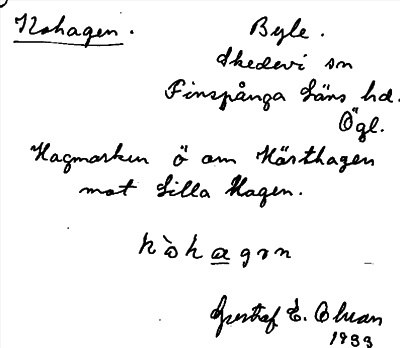 Kohagen. Byle.
Skedevi sn
Finspånga läns hd.
Ögl.
Hagmarken ö om Hästhagen
mot Lilla Hagen.
kòhagən
Gustaf E. Ohman
1933